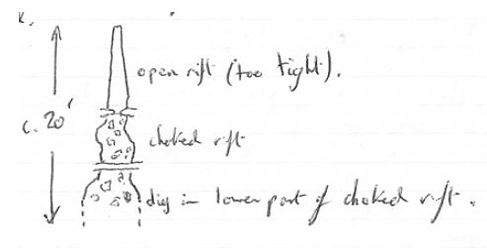 open rift (too tight).
c. 20'
choked rift
dig in lower part of choked rift.